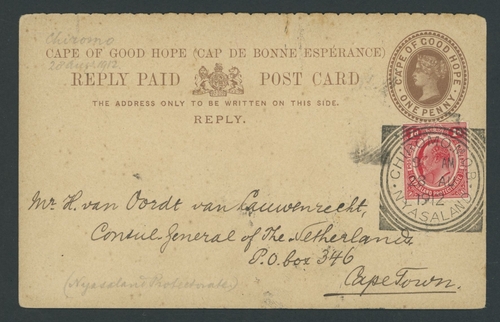 Chiromo
CAPE OF GOOD HOPE (CAP DE BONNE ESPÉRANCE)
REPLY PAID POST CARD
THE ADDRESS ONLY TO BE WRITTEN ON THIS SIDE.
REPLY.
CAPE OF GOOD HOPE
ONE PENNY
CHIROMO
1912
NYASALAND
Mr. H. van Oordt van Lauwenrecht,
Consul General of The Netherlands
P.O. box 346
Cape Town.
(Nyassaland Protectorate)